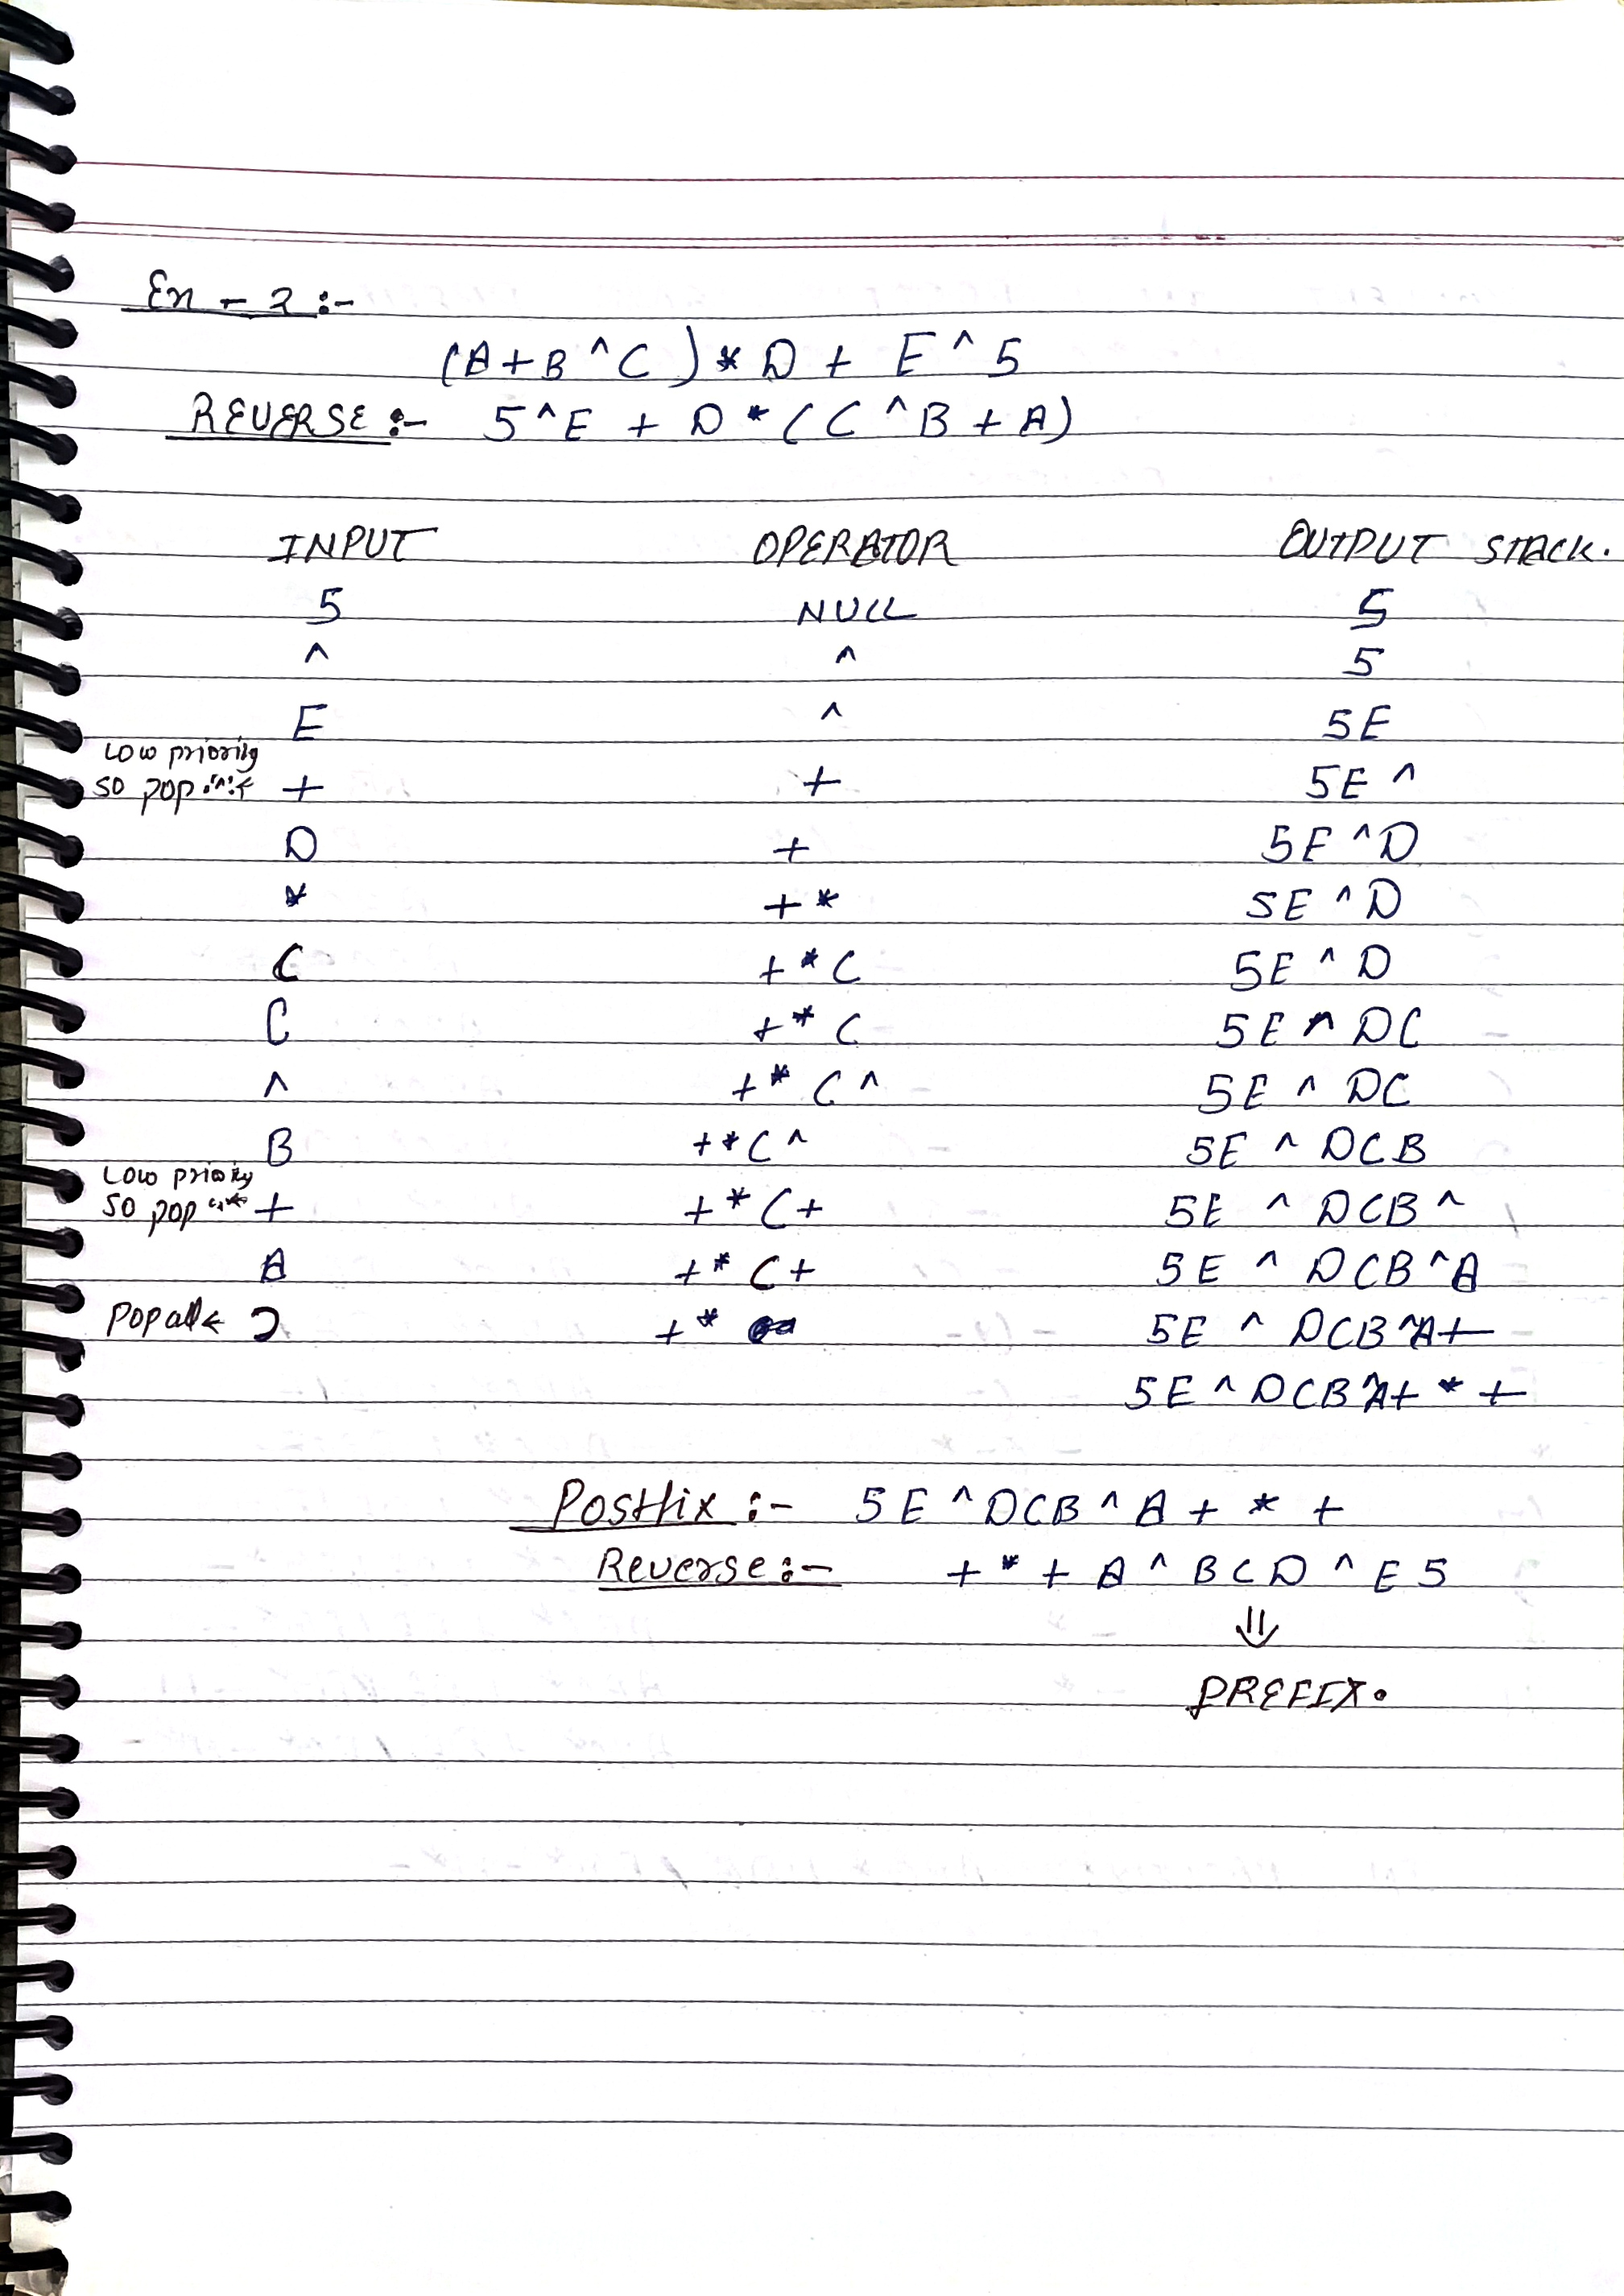 Ex - 2 :-
(A+B^C)*D + E^5
REVERSE :- 5^E + D*(C^B+A)
INPUT OPERATOR OUTPUT STACK.
5 NULL 5
^ ^ 5
E ^ 5E
Low priority
so pop "^" ← + + 5E^
D + 5E^D
* +* 5E^D
( +*( 5E^D
C +*( 5E^DC
^ +*(^ 5E^DC
B +*(^ 5E^DCB
Low priority
so pop + +*(+ 5E^DCB^
A +*(+ 5E^DCB^A
Pop all ← ) +* 5E^DCB^A+
5E^DCB^A+*+
Postfix :- 5E^DCB^A+*+
Reverse :- +*+A^BCD^E5
⇓
PREFIX.